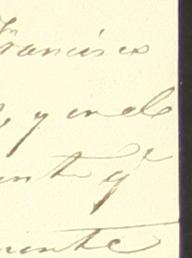 Francisco
, y en el
ente y
mente